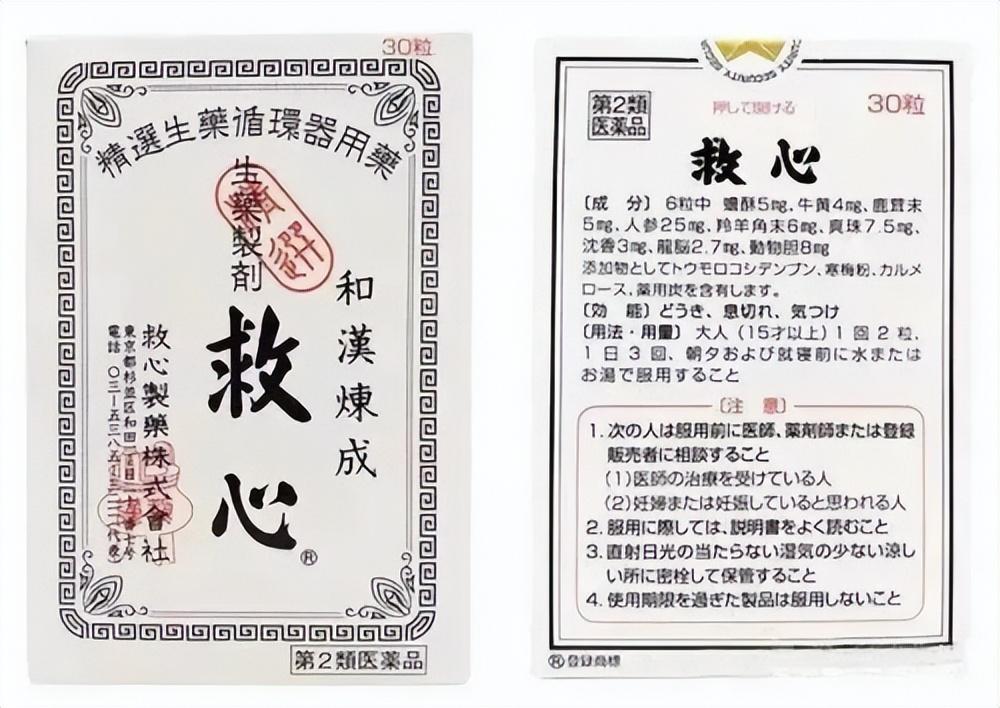 30粒
精選生薬循環器用薬
生薬製剤
和漢煉成
救心
®
救心製薬株式會社
東京都杉並区和田
電話 〇三―五三八五
第2類医薬品
SECURITY
第2類
医薬品
押して開ける
30粒
救心
〔成 分〕 6粒中 蟾酥5mg、牛黄4mg、鹿茸末
5mg、人参25mg、羚羊角末6mg、真珠7.5mg、
沈香3mg、龍脳2.7mg、動物胆8mg
添加物としてトウモロコシデンプン、寒梅粉、カルメ
ロース、薬用炭を含有します。
〔効 能〕 どうき、息切れ、気つけ
〔用法・用量〕 大人（15才以上）1回2粒、
1日3回、朝夕および就寝前に水または
お湯で服用すること
〔注 意〕
1. 次の人は服用前に医師、薬剤師または登録
販売者に相談すること
(1)医師の治療を受けている人
(2)妊婦または妊娠していると思われる人
2. 服用に際しては、説明書をよく読むこと
3. 直射日光の当たらない湿気の少ない涼し
い所に密栓して保管すること
4. 使用期限を過ぎた製品は服用しないこと
®登録商標